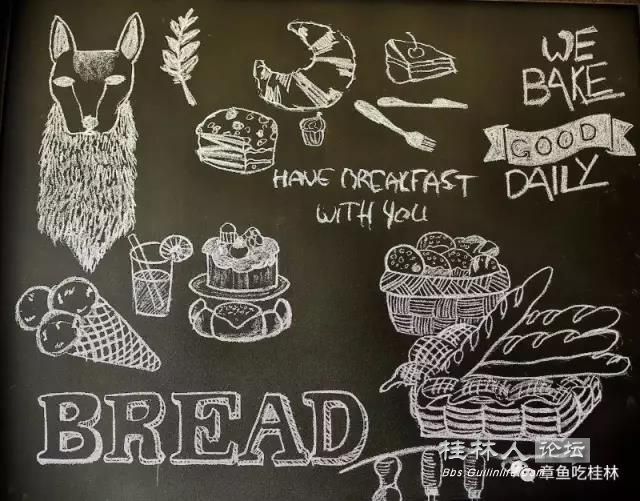 WE
BAKE
GOOD
DAILY
HAVE BREALFAST
WITH YOU
BREAD
桂林人论坛
Bbs.Guilinlife.com
章鱼吃桂林